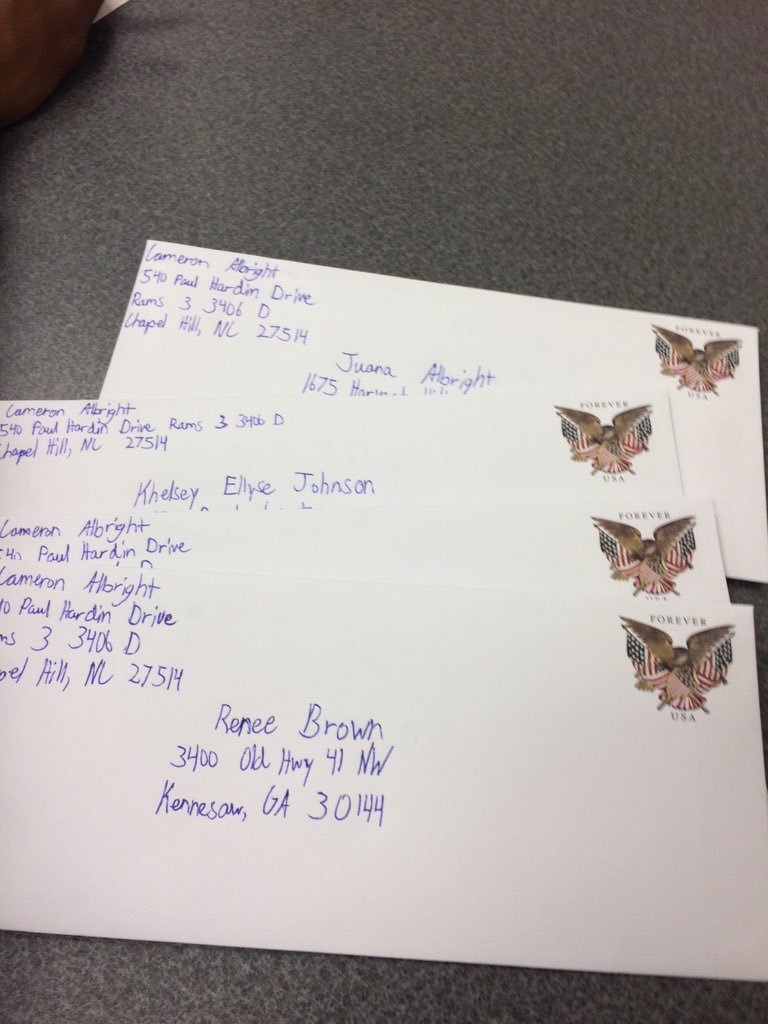 Cameron Albright
540 Paul Hardin Drive
Rams 3 3406 D
Chapel Hill, NC 27514
FOREVER
USA
Juana Albright
1675
Cameron Albright
540 Paul Hardin Drive Rams 3 3406 D
Chapel Hill, NC 27514
FOREVER
USA
Khelsey Ellyse Johnson
Cameron Albright
Paul Hardin Drive
FOREVER
Cameron Albright
Paul Hardin Drive
3 3406 D
Hill, NC 27514
FOREVER
USA
Renee Brown
3400 Old Hwy 41 NW
Kennesaw, GA 30144